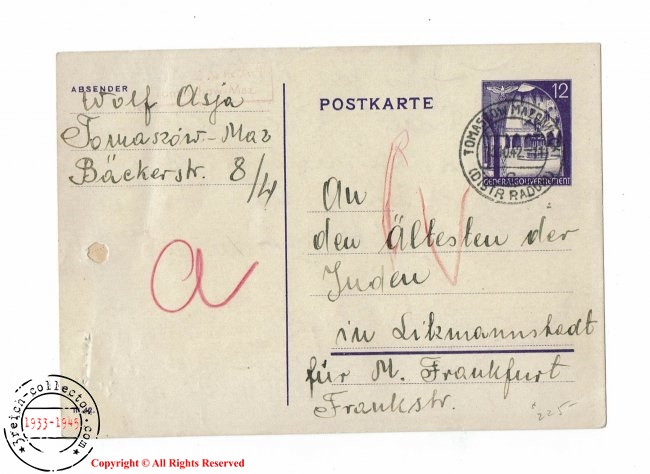 ABSENDER
Wolf Asja
Tomaszów-Maz
Bäckerstr. 8/4
a
POSTKARTE
12
TOMASZOW MAZOW
(DISTR RADOM)
GENERALGOUVERNEMENT
An
den Ältesten der
Juden
in Likmannstadt
für M. Frankfurt
Frankstr.
225-
3reich-collector.com
1933-1945
Copyright © All Rights Reserved